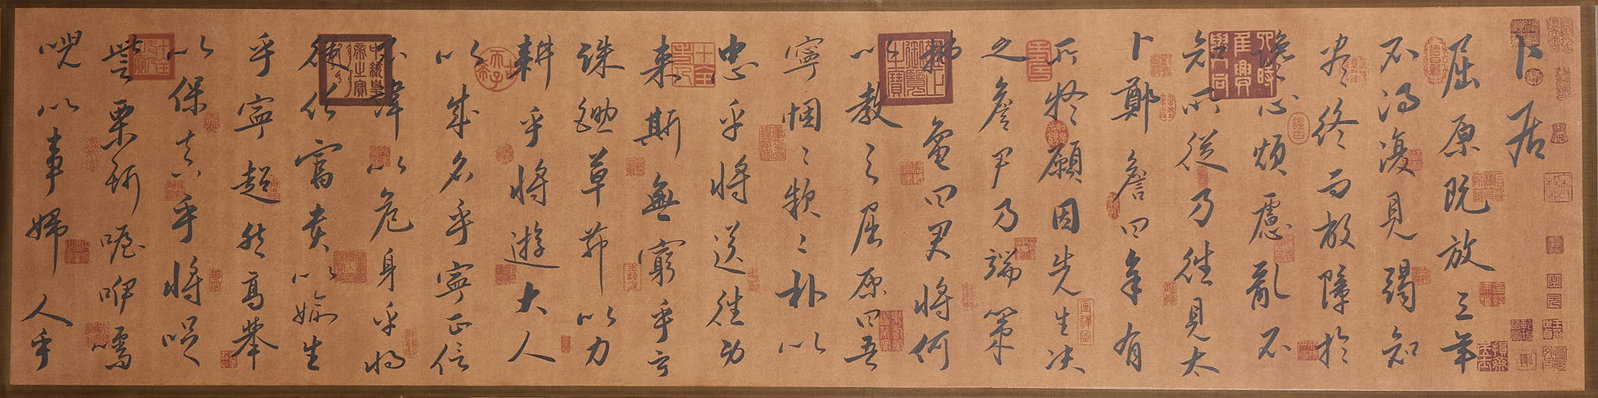 卜居
屈原既放三年
不得復見竭知
盡終而蔽障於
讒心煩慮亂不
知所從乃往見太
卜鄭詹尹曰余有
所疑願因先生決
之詹尹乃端策
拂龜曰君將何
以教之屈原曰吾
寧悃〻款〻朴以
忠乎將送往勞
来斯無窮乎寧
誅鋤草茆以力
耕乎將遊大人
以成名乎寧正信
不諱以危身乎將
從俗富貴以媮生
乎寧超然高舉
以保真乎將哫
訾栗斯喔咿嚅
唲以事婦人乎